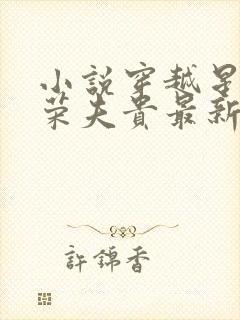 小說穿越星
荣夫貴最新
許錦香